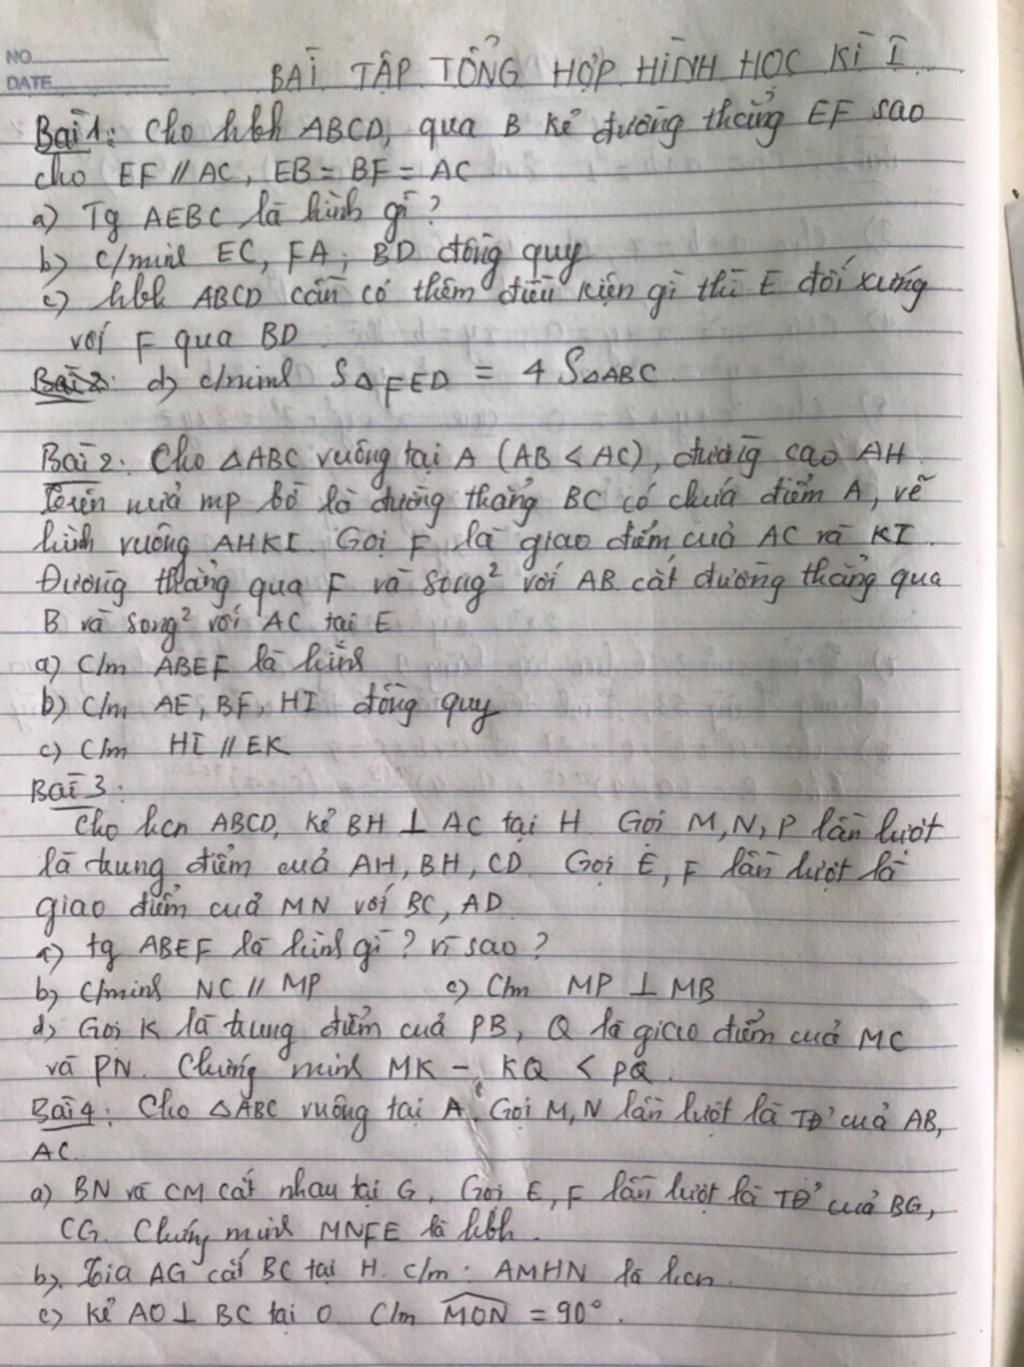 NO.
DATE
BÀI TẬP TỔNG HỢP HÌNH HỌC KÌ I
Bài 1: Cho hbh ABCD, qua B kẻ đường thẳng EF sao
cho EF // AC, EB = BF = AC
a) Tg AEBC là hình gì?
b) c/minh EC, FA, BD đồng quy
c) hbh ABCD cần có thêm điều kiện gì thì E đối xứng
với F qua BD
Bài 2 d) c/minh S△FED = 4 S△ABC
Bài 2: Cho △ABC vuông tại A (AB < AC), đường cao AH.
Trên nửa mp bờ là đường thẳng BC có chứa điểm A, vẽ
hình vuông AHKI. Gọi F là giao điểm của AC và KI.
Đường thẳng qua F và song² với AB cắt đường thẳng qua
B và song² với AC tại E
a) C/m ABEF là hình
b) C/m AE, BF, HI đồng quy
c) C/m HI // EK
Bài 3:
Cho hcn ABCD, kẻ BH ⊥ AC tại H. Gọi M, N, P lần lượt
là trung điểm của AH, BH, CD. Gọi E, F lần lượt là
giao điểm của MN với BC, AD
a) tg ABEF là hình gì? vì sao?
b) C/minh NC // MP c) C/m MP ⊥ MB
d) Gọi K là trung điểm của PB, Q là giao điểm của MC
và PN. Chứng minh MK - KQ < PQ.
Bài 4: Cho △ABC vuông tại A. Gọi M, N lần lượt là TĐ' của AB,
AC.
a) BN và CM cắt nhau tại G, Gọi E, F lần lượt là TĐ' của BG,
CG. Chứng minh MNFE là hbh.
b). Tia AG cắt BC tại H. c/m: AMHN là hcn.
c) Kẻ AO ⊥ BC tại O C/m MON = 90°.